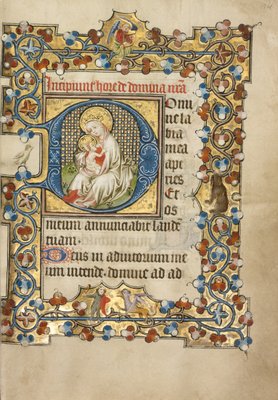 Incipiunt hore de domina nra
Domi
ne la
bia
mea
ape
ries
Et
os
meum annunciabit laude
tuam.
Deus in adiutorium me
um intende. domine ad ad